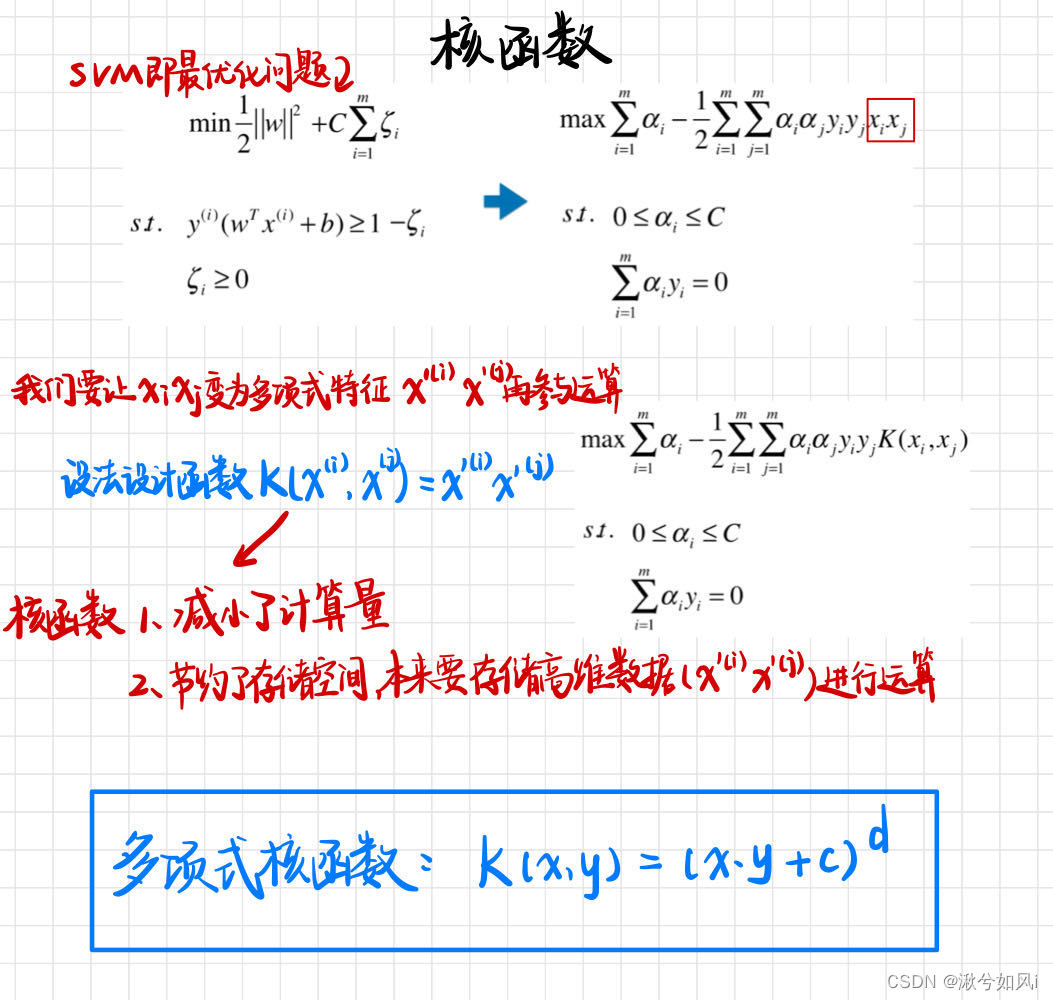 核函数
SVM即最优化问题2
min 1/2 ||w||² + C ∑_{i=1}^{m} ζ_i
s.t. y^{(i)}(w^T x^{(i)} + b) ≥ 1 − ζ_i
ζ_i ≥ 0
max ∑_{i=1}^{m} α_i − 1/2 ∑_{i=1}^{m} ∑_{j=1}^{m} α_i α_j y_i y_j x_i x_j
s.t. 0 ≤ α_i ≤ C
∑_{i=1}^{m} α_i y_i = 0
我们要让 x_i x_j 变为多项式特征 x'^{(i)} x'^{(j)} 再参与运算
设法设计函数 K(x^{(i)}, x^{(j)}) = x'^{(i)} x'^{(j)}
max ∑_{i=1}^{m} α_i − 1/2 ∑_{i=1}^{m} ∑_{j=1}^{m} α_i α_j y_i y_j K(x_i, x_j)
s.t. 0 ≤ α_i ≤ C
∑_{i=1}^{m} α_i y_i = 0
核函数 1、减小了计算量
2、节约了存储空间,本来要存储高维数据(x'^{(i)} x'^{(j)})进行运算
多项式核函数: K(x,y) = (x·y + c)^d
CSDN @湫兮如风i